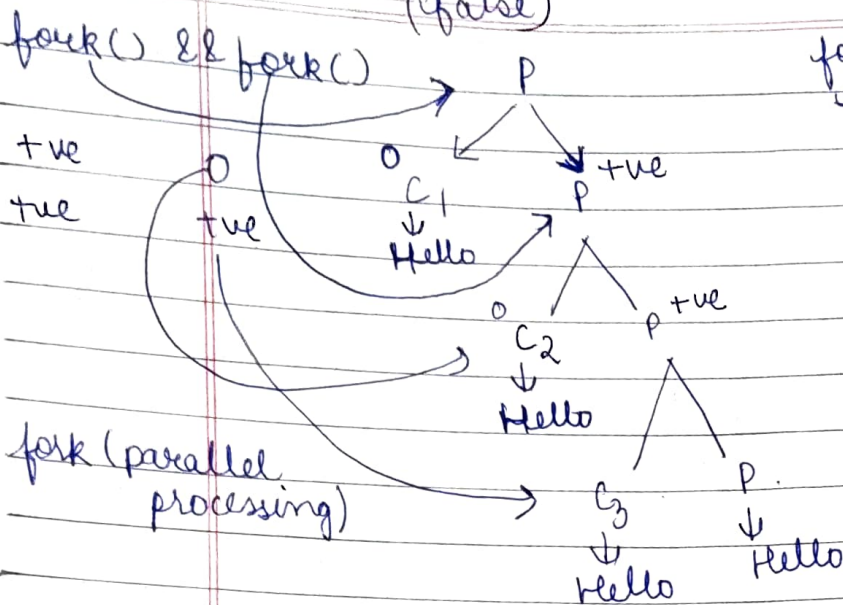 (false)
fork() && fork()
P
fo
+ve
0
0
+ve
C1
P
+ve
+ve
Hello
0
+ve
C2
P
Hello
fork (parallel
processing)
C3
P.
Hello
Hello